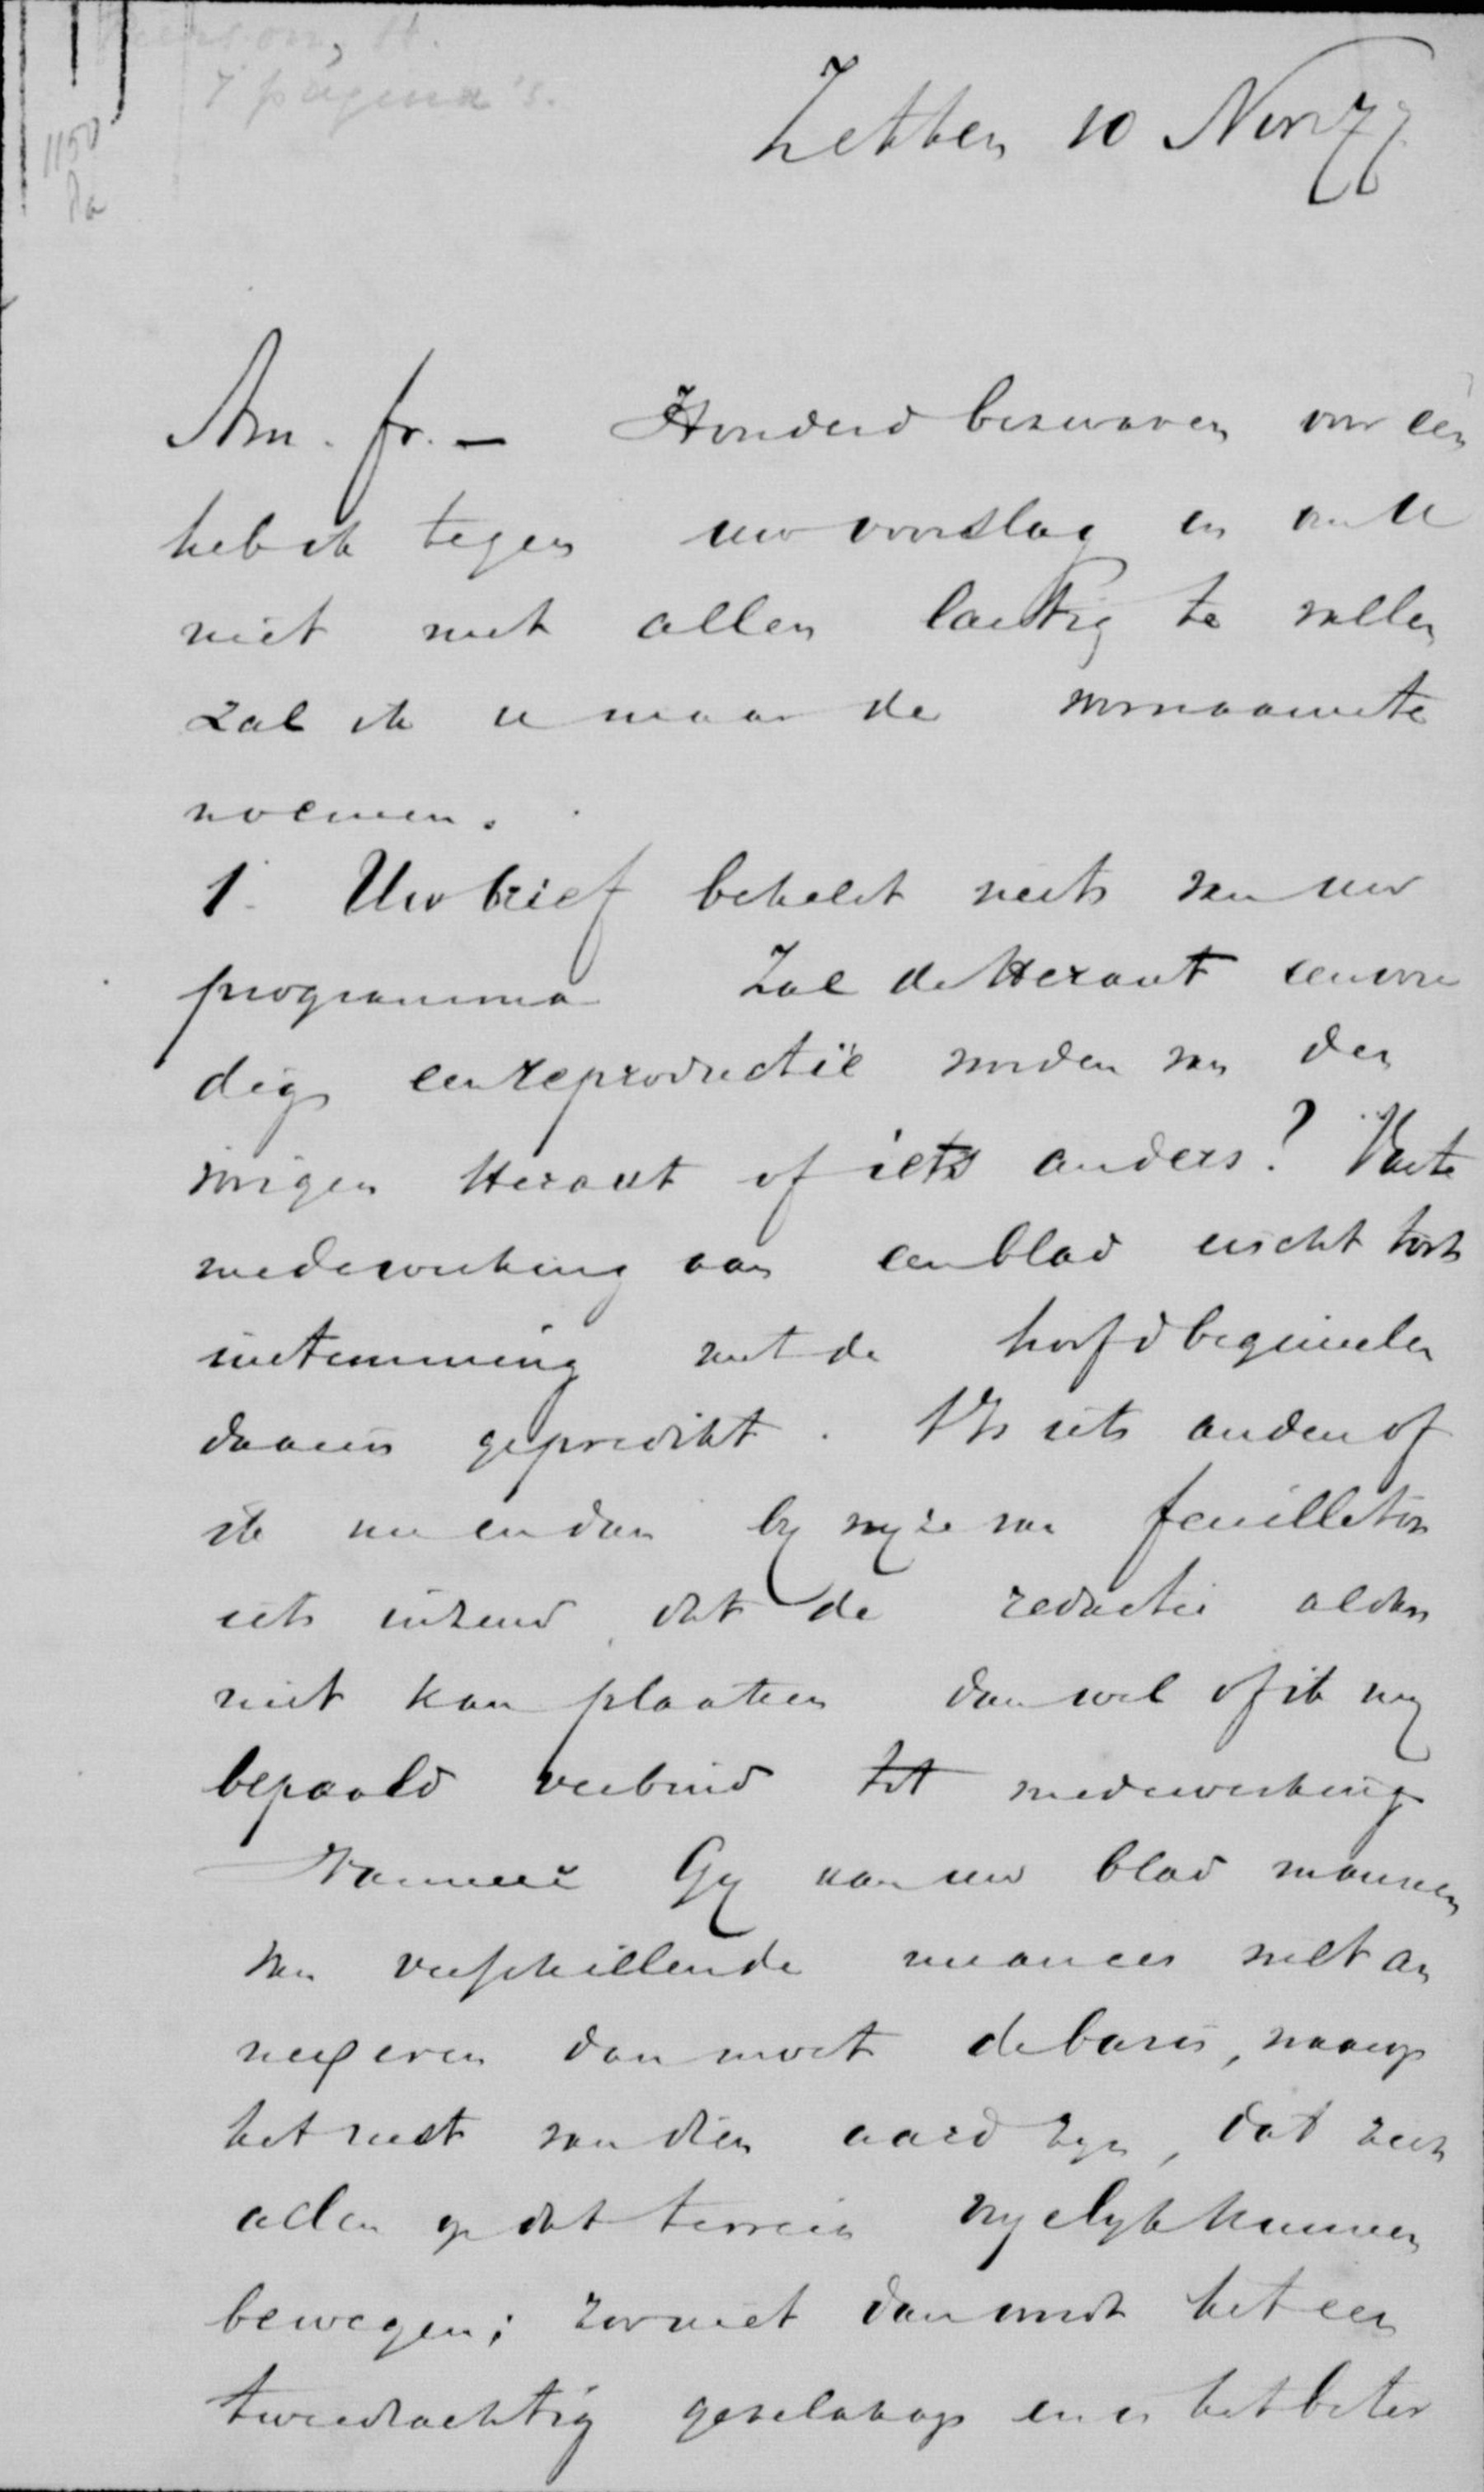 Pierson, H.
7 pagina's.
1150
Zetten 10 Nov 77
Am. fr. — Honderd bezwaren voor één
heb ik tegen uw voorslag en om U
niet met allen lastig te vallen
zal ik u maar de voornaamste
noemen.
1. Uw brief behelst niets van uw
programma Zal de Heraut eenvou
dig een reproductie worden van den
vorigen Heraut of iets anders? Vaste
medewerking aan een blad eischt toch
instemming met de hoofdbeginselen
daarin gepredikt. 't Is iets anders of
ik nu en dan by wyze van feuilleton
iets inzend dat de redactie al dan
niet kan plaatsen dan wel of ik my
bepaald verbind tot medewerking
Wanneer Gy voor uw blad mannen
van verschillende nuances wilt en
dan moet de basis, waarop
het rust van dien aard zyn, dat zich
allen op dat terrein vryelyk kunnen
bewegen; zoo niet dan wordt het een
tweedrachtig gezelschap en is het beter